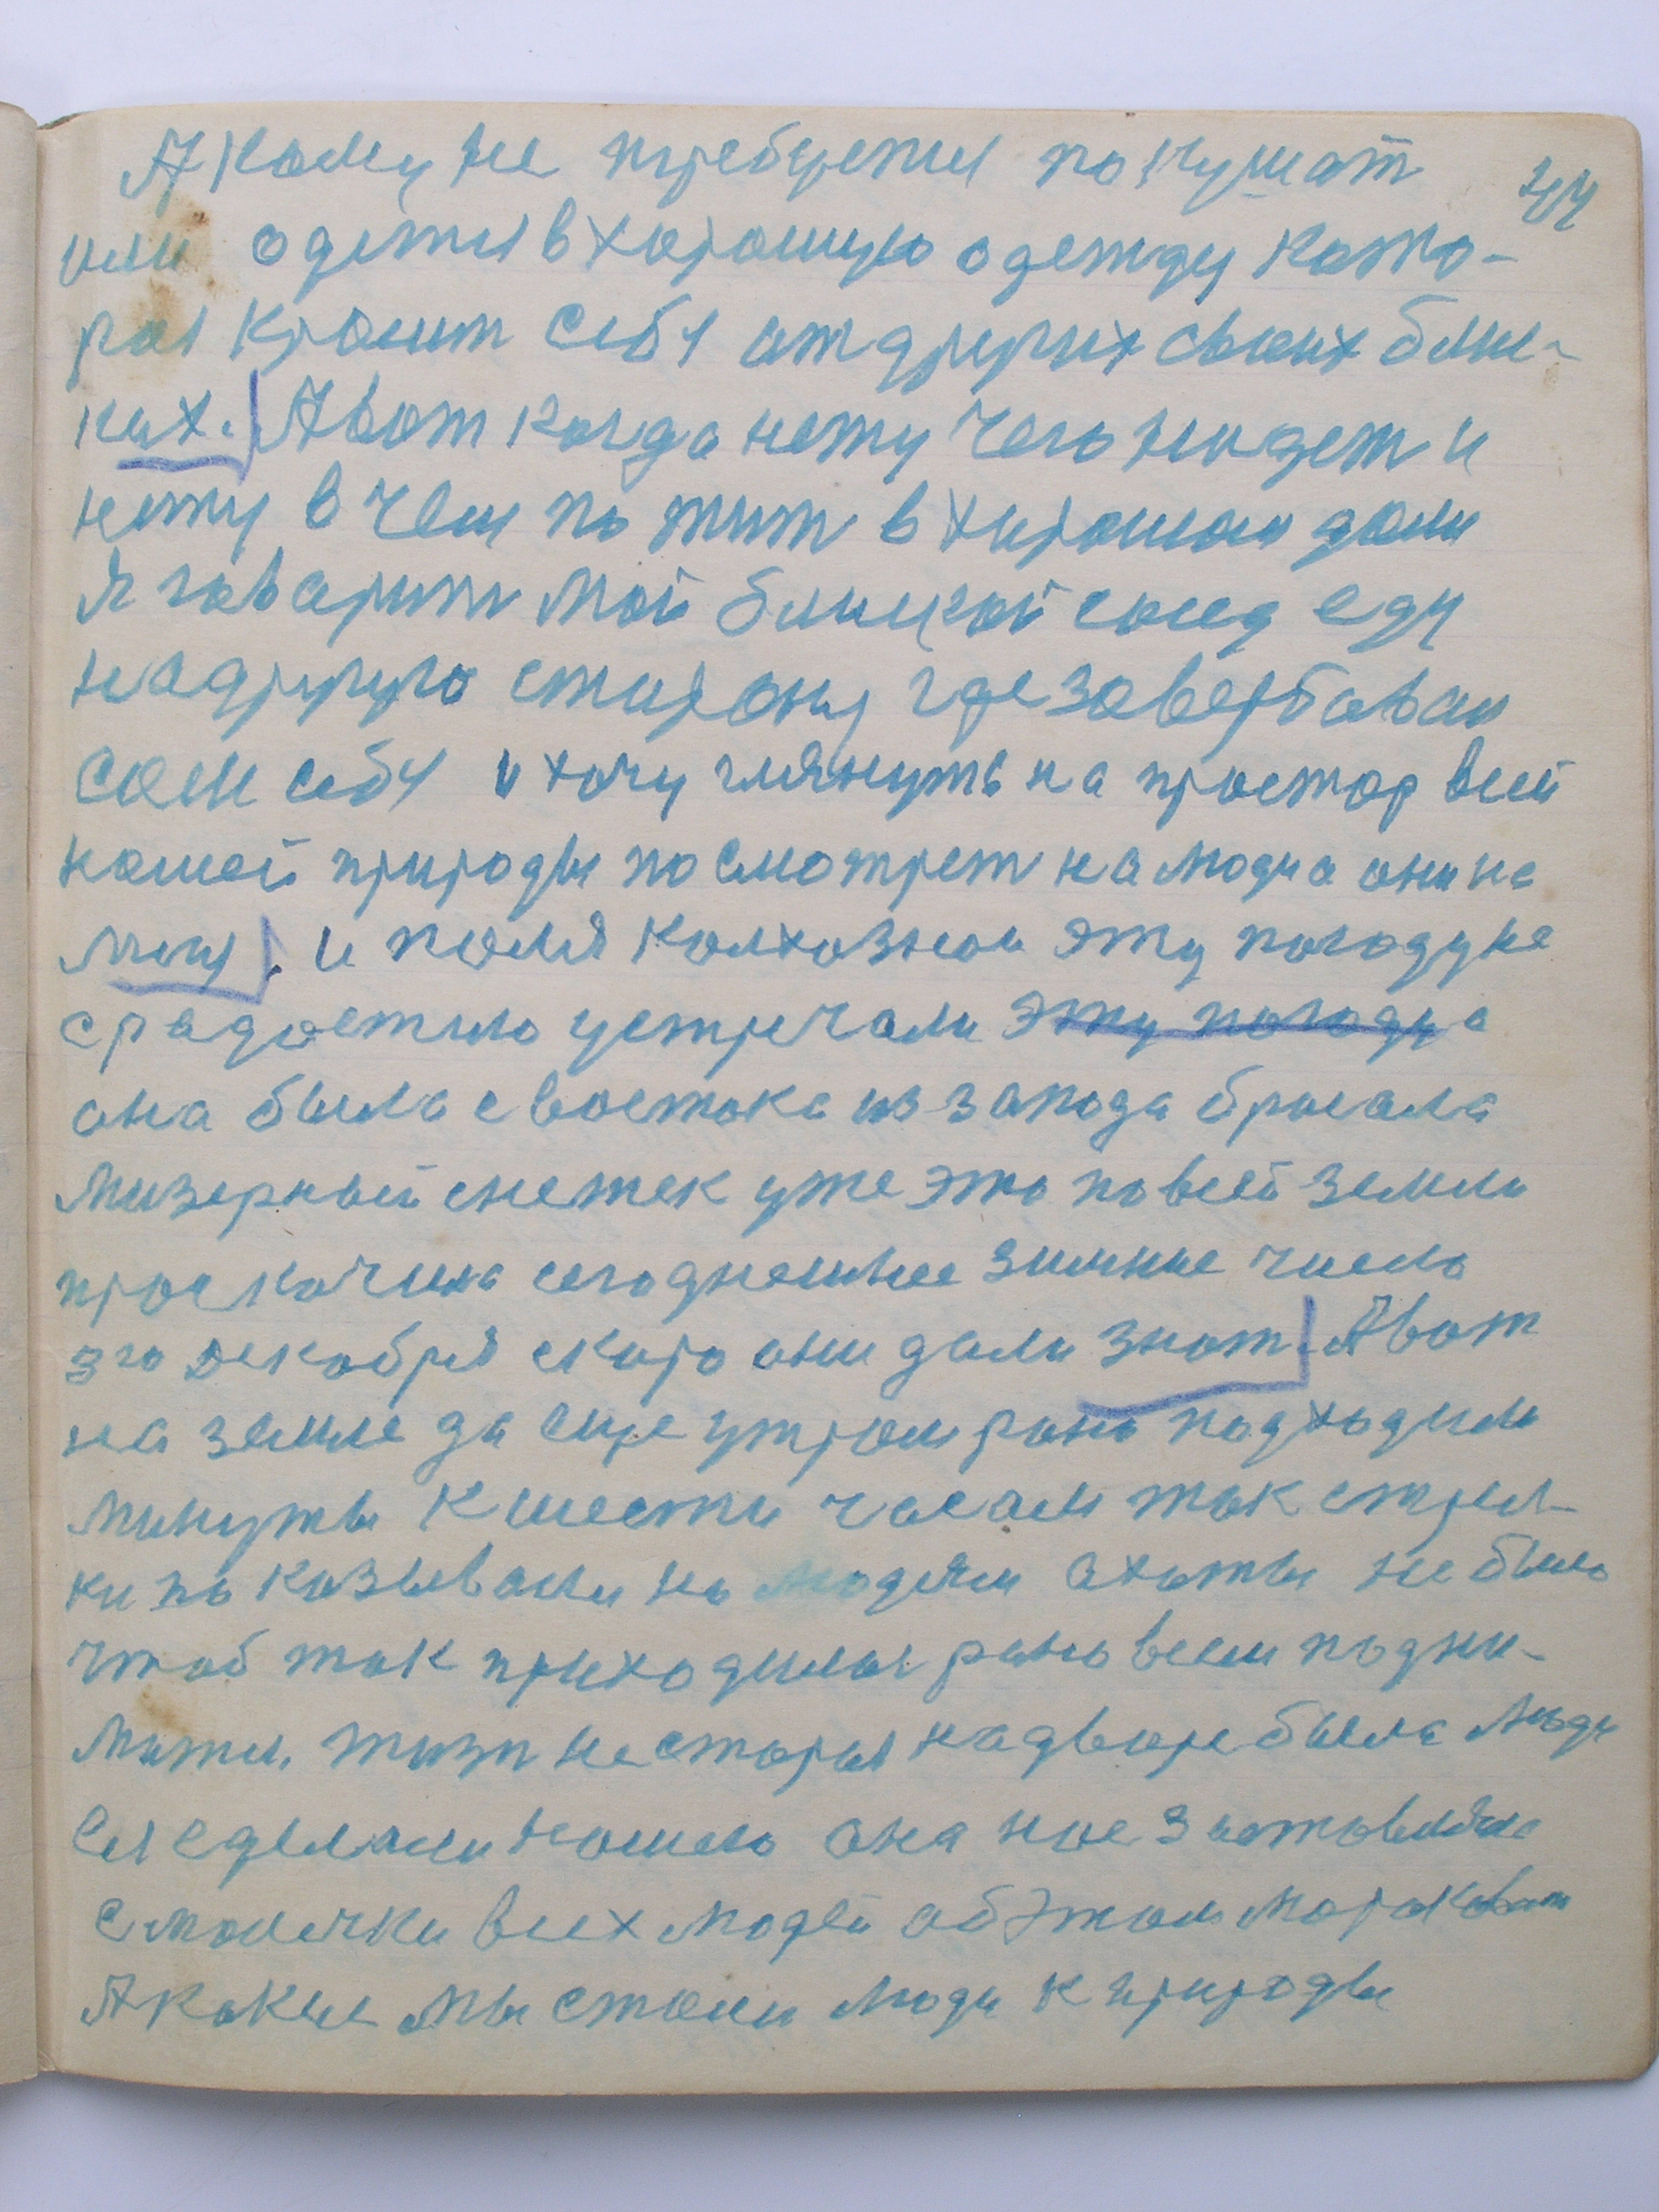 А кому не требуется покушат
или одется в хорошую одежду кото-
рая кроит себя от других своих бли-
ких. А вот когда нету чего надет и
нету в чем по жит в хорошом доми
Я говарит мой близкой сосед еду
на другую сторону где завербовал
сам себя и хочу глянуть на простор всей
нашей природы посмотрет на людиа они на
мну. и поля колхозном эту погоду не
с радостью устречали эту погоду а
она была с востока из запода бросала
мизерный снежек уже это по всей земли
проскочила сегоднешнее зимние число
3го декабря скоро они дали знат. А вот
на земле да еще утром рано подходили
минуты к шести часам так стрел-
ки показывали но людям ахоты не было
чтоб так приходилос рано всем подни-
матся. жизн не старая надворе была люди
сделали нашею она нас заставляла
с молички всех людей об этом мараковат
А какие мы стали люди к природы